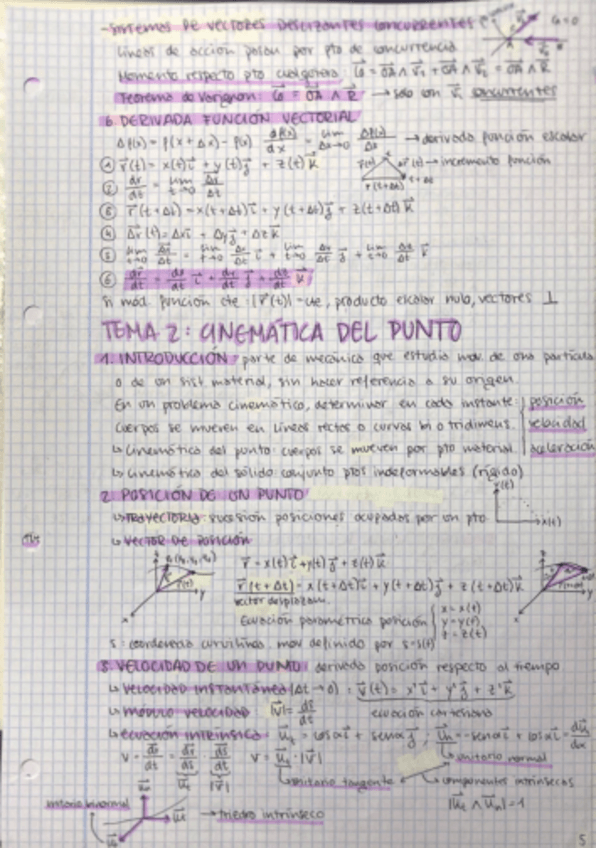 - SISTEMAS DE VECTORES DESLIZANTES CONCURRENTES
Líneas de acción pasan por pto de concurrencia
G = 0
Momento respecto pto cualquiera: G⃗ = OA⃗ ∧ V⃗₁ + OA⃗ ∧ V⃗₂ = OA⃗ ∧ R⃗
Teorema de Varignon G⃗ = OA⃗ ∧ R⃗ → solo con V⃗ᵢ concurrentes
6. DERIVADA FUNCIÓN VECTORIAL
Δf(x) = f(x + Δx) - f(x) df(x)/dx = lim Δx→0 Δf(x)/Δx → derivada función escalar
① r⃗(t) = x(t)i⃗ + y(t)j⃗ + z(t)k⃗
Δr(t) → incremento función
r(t+Δt)
② dr⃗/dt = lim t→0 Δr⃗/Δt
③ r⃗(t+Δt) = x(t+Δt)i⃗ + y(t+Δt)j⃗ + z(t+Δt)k⃗
④ Δr⃗(t) = Δxi⃗ + Δyj⃗ + Δzk⃗
⑥ dr⃗/dt
Si mod. función cte: |r⃗(t)| = cte, producto escalar nulo, vectores ⊥
TEMA 2: CINEMÁTICA DEL PUNTO
1. INTRODUCCIÓN: parte de mecánica que estudia mov. de una partícula
o de un sist material, sin hacer referencia a su origen.
En un problema cinemático, determinar en cada instante: posición
Cuerpos se mueven en líneas rectas o curvas bi o tridimens. velocidad
↳ Cinemática del punto: cuerpos se mueven por pto material aceleración
↳ Cinemática del sólido: conjunto ptos indeformables (rígido)
2. POSICIÓN DE UN PUNTO
y(t)
↳ TRAYECTORIA: sucesión posiciones ocupadas por un pto
x(t)
↳ VECTOR DE POSICIÓN
r⃗ = x(t)i⃗ + y(t)j⃗ + z(t)k⃗
r⃗(t+Δt) = x(t+Δt)i⃗ + y(t+Δt)j⃗ + z(t+Δt)k⃗
vector desplazam.
Ecuación paramétrica posición { x = x(t)
y = y(t)
z = z(t)
s: coordenada curvilínea. mov definido por s=s(t)
3. VELOCIDAD DE UN PUNTO: derivada posición respecto al tiempo
↳ VELOCIDAD INSTANTÁNEA (Δt→0) = V⃗(t) = x'i⃗ + y'j⃗ + z'k⃗
↳ MÓDULO VELOCIDAD: |V⃗| = ds/dt
ecuación cartesiana
↳ ECUACIÓN INTRÍNSECA: u⃗t = cosαi⃗ + senαj⃗
unitario normal
unitario tangente
componentes intrínsecas
|u⃗t ∧ u⃗n| = 1
unitario binormal
→ triedro intrínseco
5